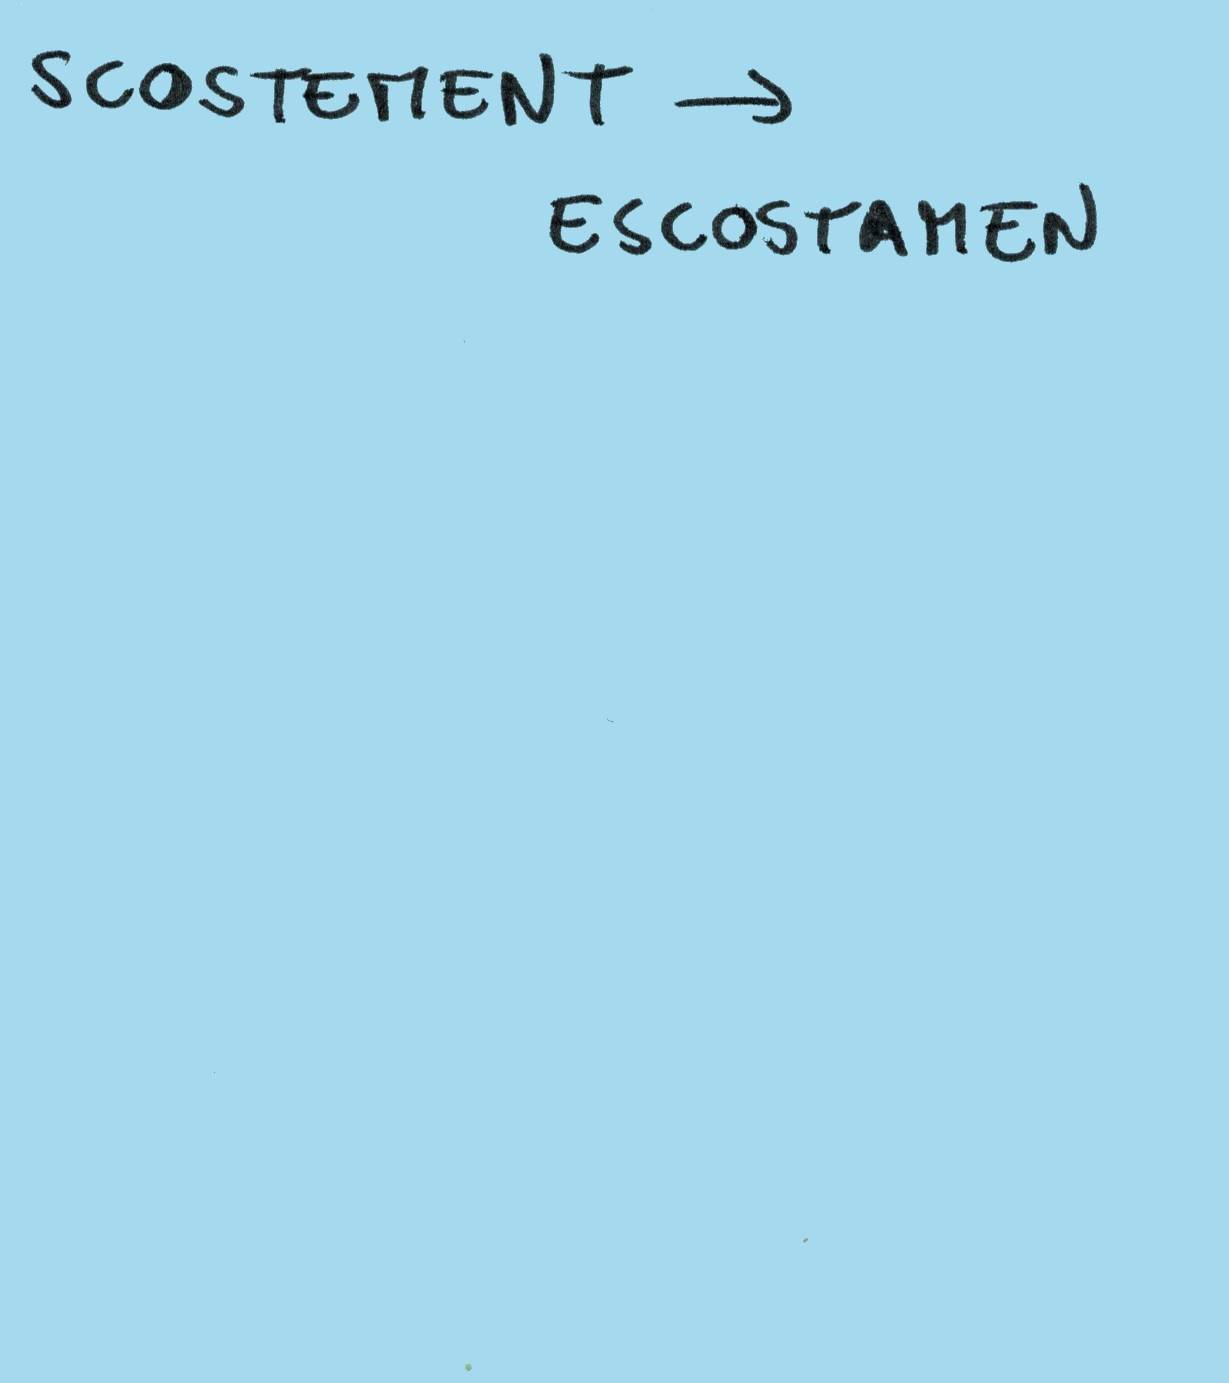 SCOSTEMENT →
ESCOSTAMEN